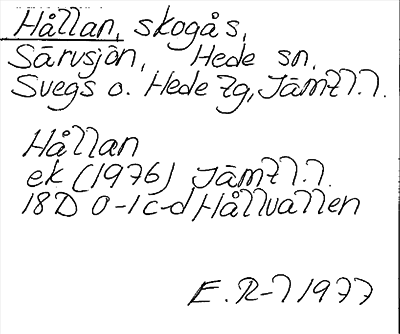 Hållan, skogås,
Särvsjön, Hede sn,
Svegs o. Hede tg, Jämtl.l.
Hållan
ek (1976) Jämtl.l.
18D 0-1c-d Hållvallen
E.R-l 1977